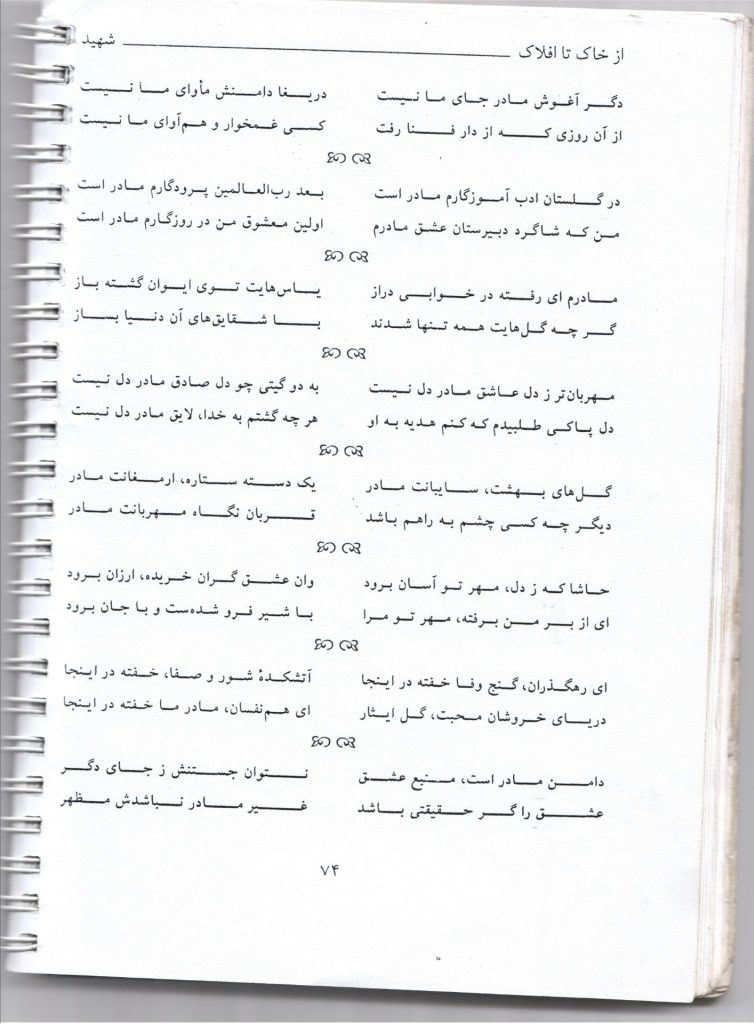 از خاک تا افلاک شهید
دگر آغوش مادر جای ما نیست دریغا دامنش مأوای ما نیست
از آن روزی که از دار فنا رفت کسی غمخوار و هم‌آوای ما نیست
در گلستان ادب آموزگارم مادر است بعد رب‌العالمین پرودگارم مادر است
من که شاگرد دبیرستان عشق مادرم اولین معشوق من در روزگارم مادر است
مادرم ای رفته در خوابی دراز یاس‌هایت توی ایوان گشته باز
گر چه گل‌هایت همه تنها شدند با شقایق‌های آن دنیا بساز
مهربان‌تر ز دل عاشق مادر دل نیست به دو گیتی چو دل صادق مادر دل نیست
دل پاکی طلبیدم که کنم هدیه به او هر چه گشتم به خدا، لایق مادر دل نیست
گل‌های بهشت، سایبانت مادر یک دسته ستاره، ارمغانت مادر
دیگر چه کسی چشم به راهم باشد قربان نگاه مهربانت مادر
حاشا که ز دل، مهر تو آسان برود وان عشق گران خریده، ارزان برود
ای از بر من برفته، مهر تو مرا با شیر فرو شده‌ست و با جان برود
ای رهگذران، گنج وفا خفته در اینجا آتشکدهٔ شور و صفا، خفته در اینجا
دریای خروشان محبت، گل ایثار ای هم‌نفسان، مادر ما خفته در اینجا
دامن مادر است، منبع عشق نتوان جستنش ز جای دگر
عشق را گر حقیقتی باشد غیر مادر نباشدش مظهر
۷۴